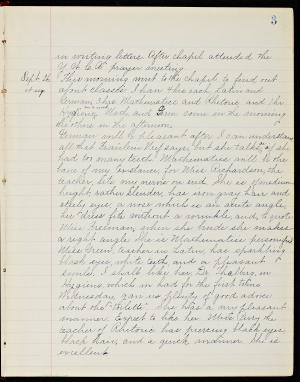 3
in writing letters. After chapel attended the
Y. W. C. A. prayer meeting.
Sept. 26 This morning went to the chapel to find out
about classes. I have this each Latin and
German, this Mathematics and Rhetoric and the
Hygiene, Math and Germ come in the morning
the others in the afternoon.
German will be pleasant after I can understand
all that Fraulein says, but she talks as if she
had too many teeth! Mathematics will be the
bane of my existence, for Miss Richardson, the
teacher, gets my nerves on end. She is of medium
height, rather slender, has iron gray hair and
steely eyes, a nose which is an acute angle,
her dress fits without a wrinkle, and, to quote
Miss, when she bends she makes
a right angle. She is Mathematics personified.
Miss Green, teacher in Latin, has sparkling
black eyes, white teeth and a pleasant
smile. I shall like her. Dr. in
Hygiene which we had for the first time
Wednesday, gave us plenty of good advice
about the. She has a very pleasant
manner. Expect to like her. Miss the
teacher of Rhetoric has piercing black eyes,
black hair, and a quick manner. She is
excellent.